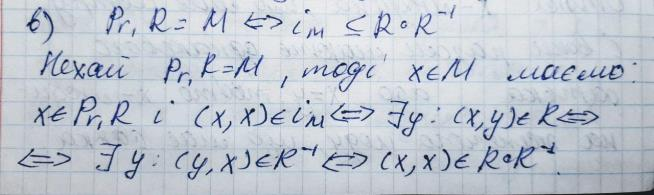 б) Pr₁R = M ⇔ i_M ≤ R∘R⁻¹
Нехай Pr₁R=M, тоді x∈M маємо:
x∈Pr₁R і (x,x)∈i_M ⇔ ∃y: (x,y)∈R ⇔
⇔ ∃y: (y,x)∈R⁻¹ ⇔ (x,x)∈R∘R⁻¹.